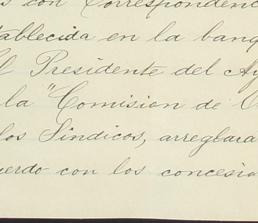 s con Correspondenc
tablecida en la banq
l Presidente del Ay
la "Comision de C
los Sindicos, arreglara
uerdo con los concesio